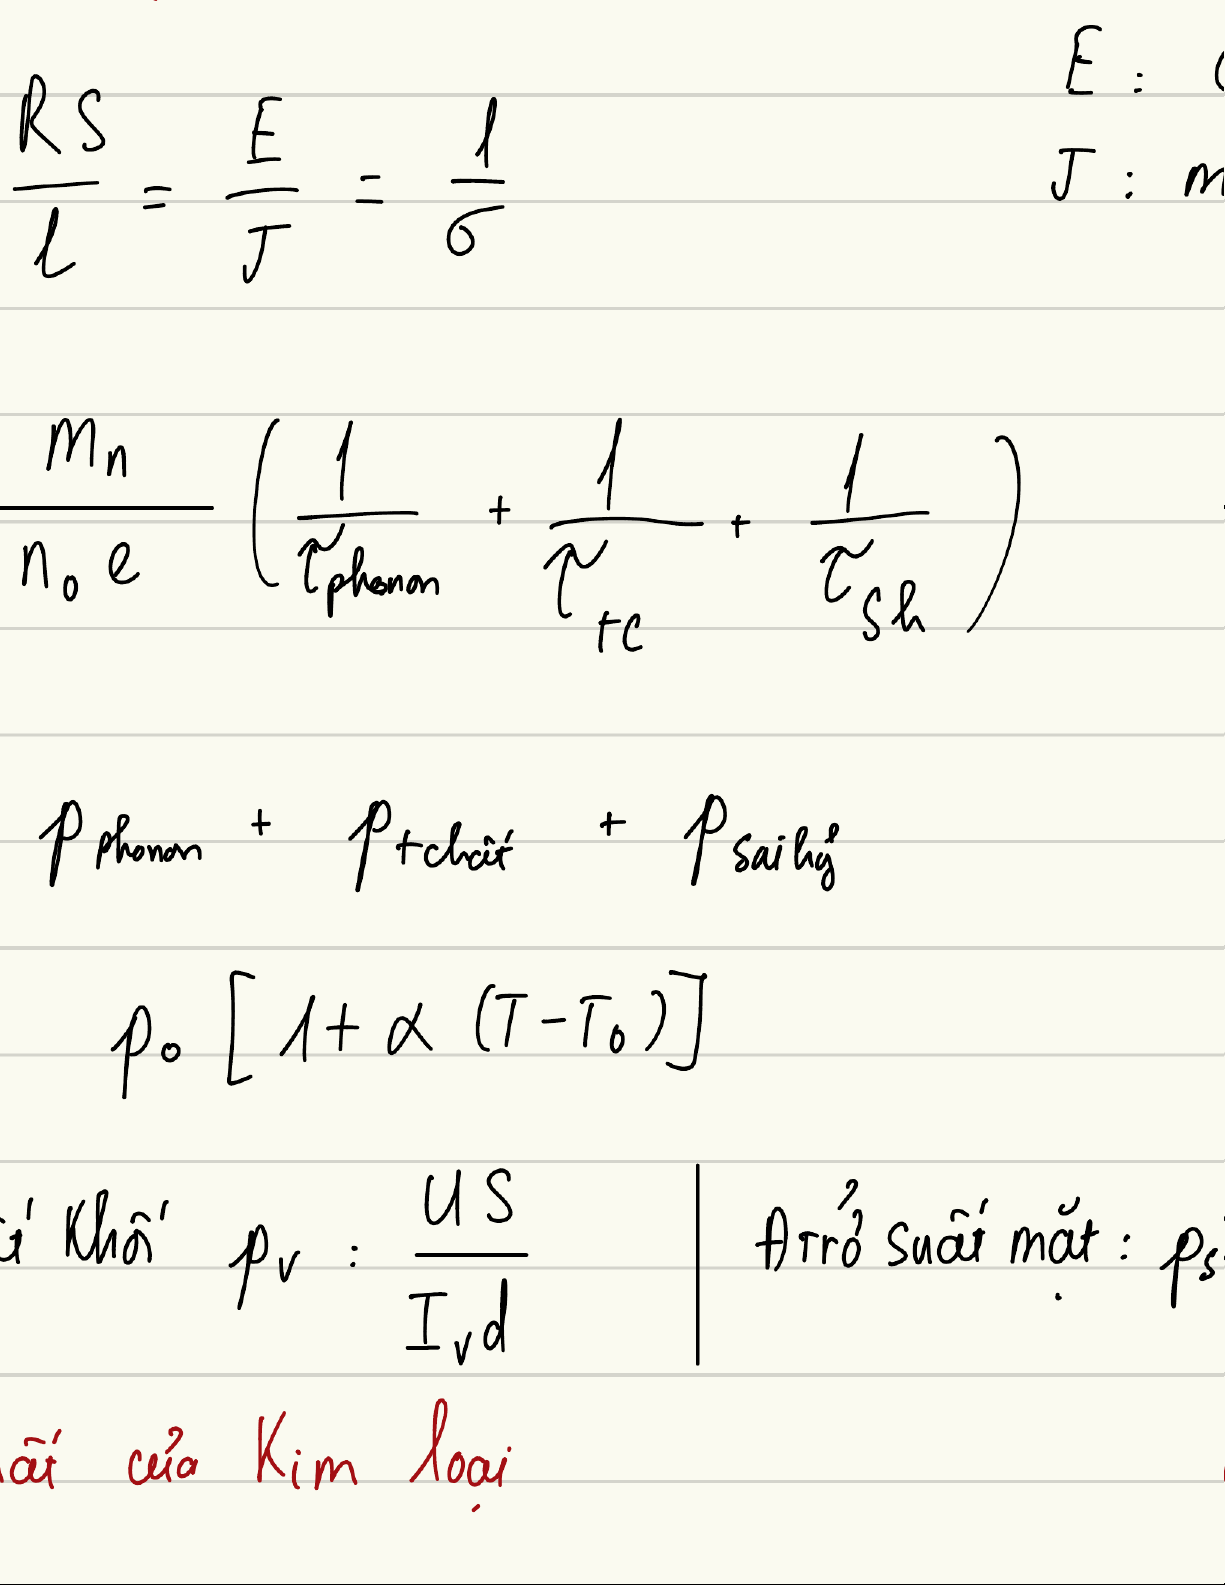 E :
RS/l = E/J = 1/σ
J : m
mₙ/(n₀ e) (1/τ_phonon + 1/τ_tc + 1/τ_sh)
ρ_phonon + ρ_tchất + ρ_sai hỏng
ρ₀ [1 + α (T - T₀)]
khối ρᵥ : US/(Iᵥd) | Đtrở suất mặt : ρₛ
của Kim loại